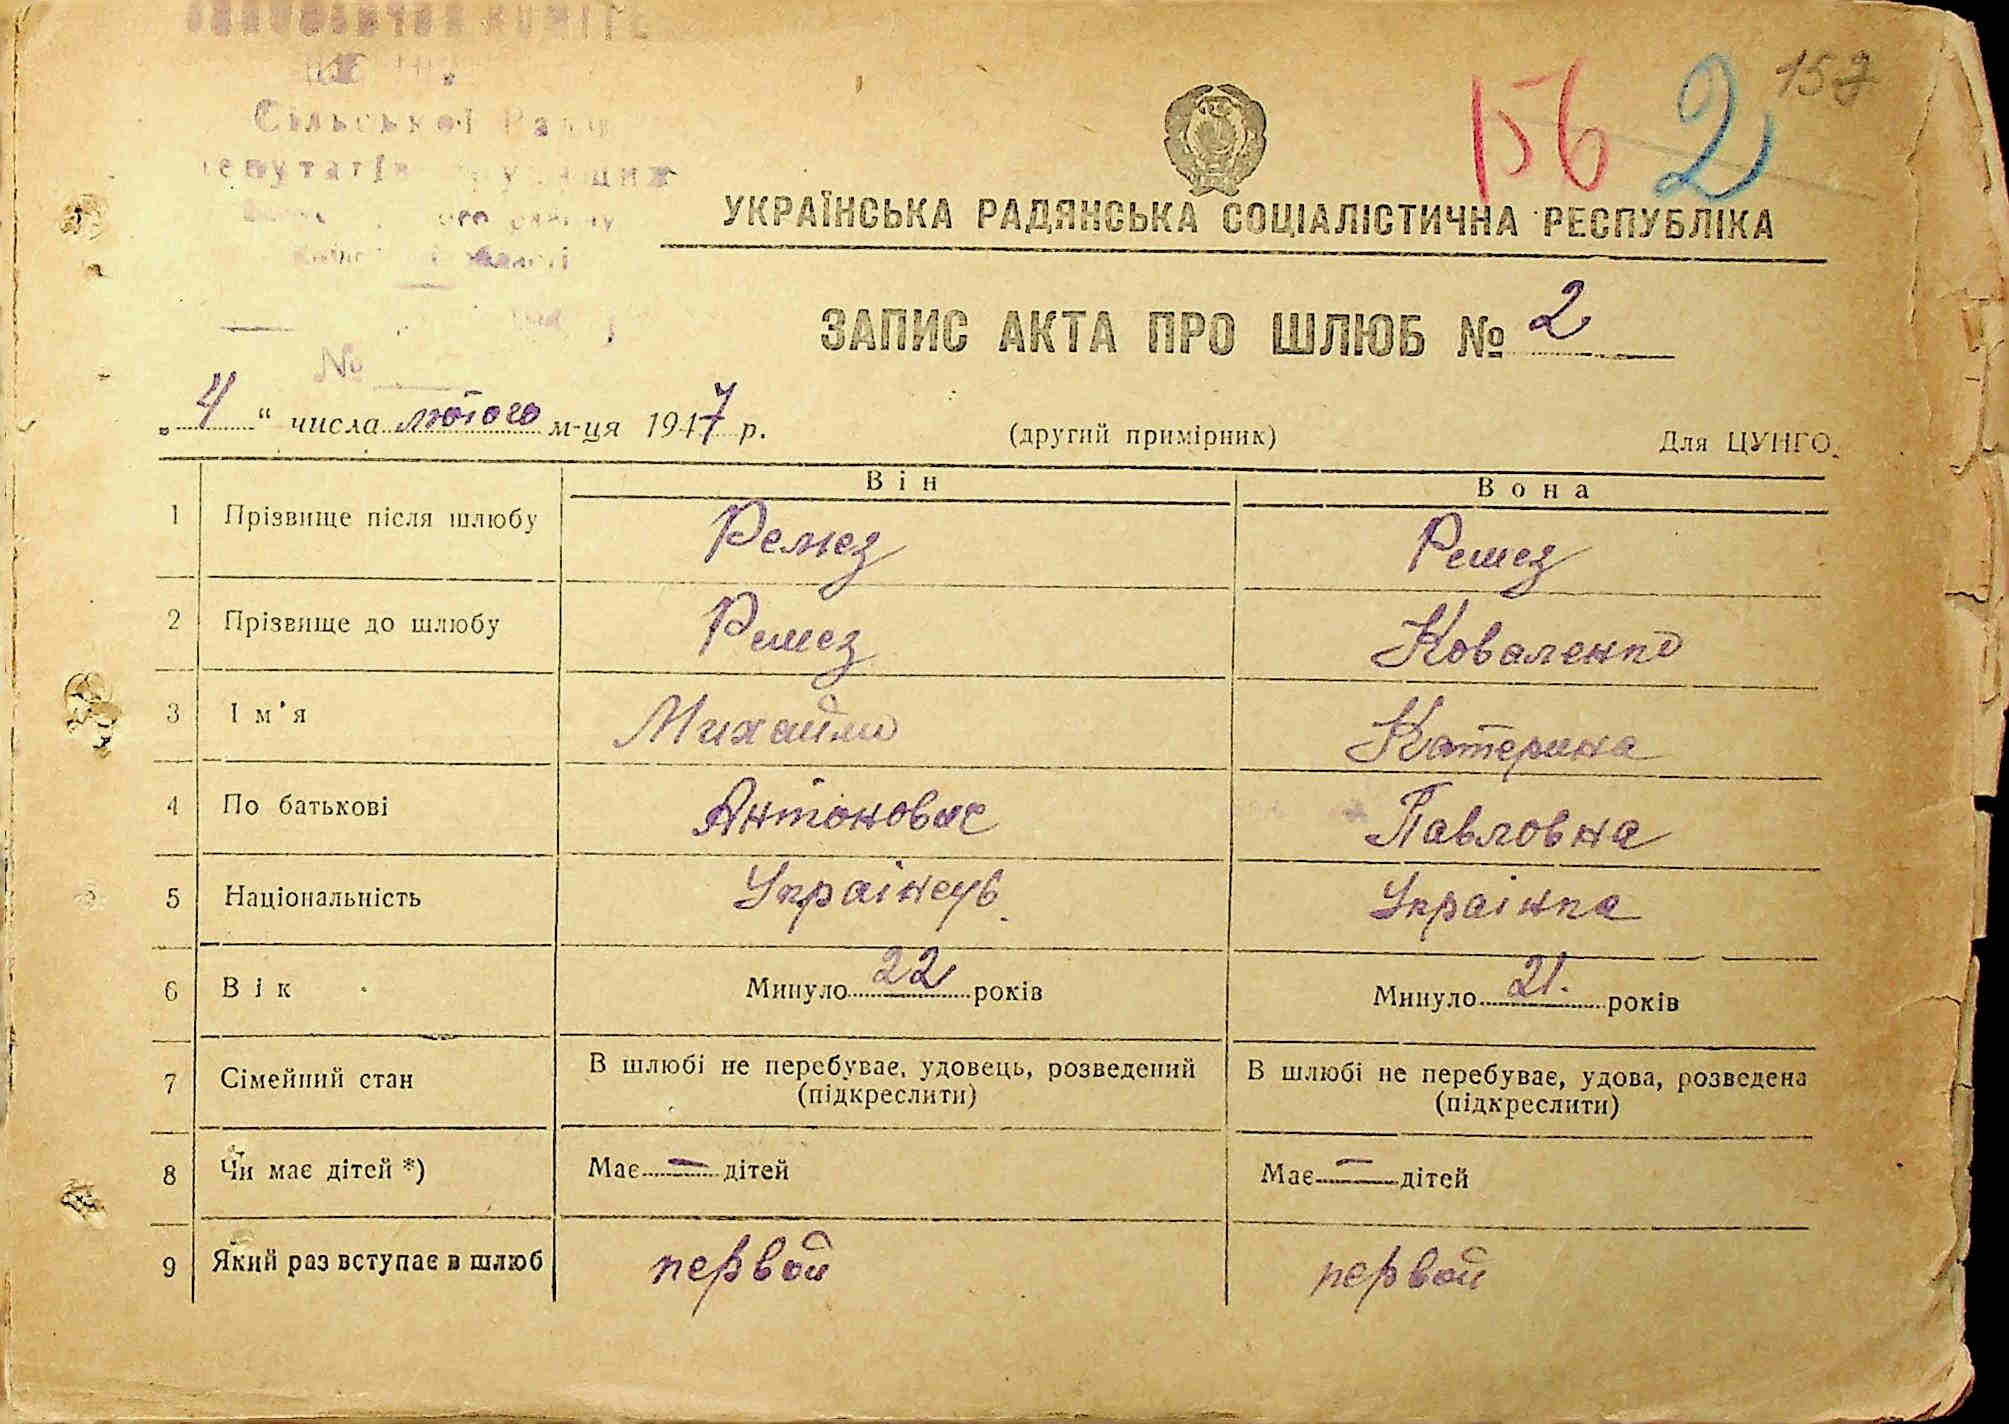 Сільської Ради
156 2 157
УКРАЇНСЬКА РАДЯНСЬКА СОЦІАЛІСТИЧНА РЕСПУБЛІКА
ЗАПИС АКТА ПРО ШЛЮБ № 2
№
„4“ числа лютого м-ця 1947 р. (другий примірник) Для ЦУНГО
Він Вона
1 Прізвище після шлюбу Ремез Ремез
2 Прізвище до шлюбу Ремез Коваленко
3 Ім'я Михайло Катерина
4 По батькові Антонович Павловна
5 Національність Українець Українка
6 Вік Минуло 22 років Минуло 21. років
7 Сімейний стан В шлюбі не перебуває, удовець, розведений В шлюбі не перебуває, удова, розведена
(підкреслити) (підкреслити)
8 Чи має дітей *) Має — дітей Має — дітей
9 Який раз вступає в шлюб первой первой